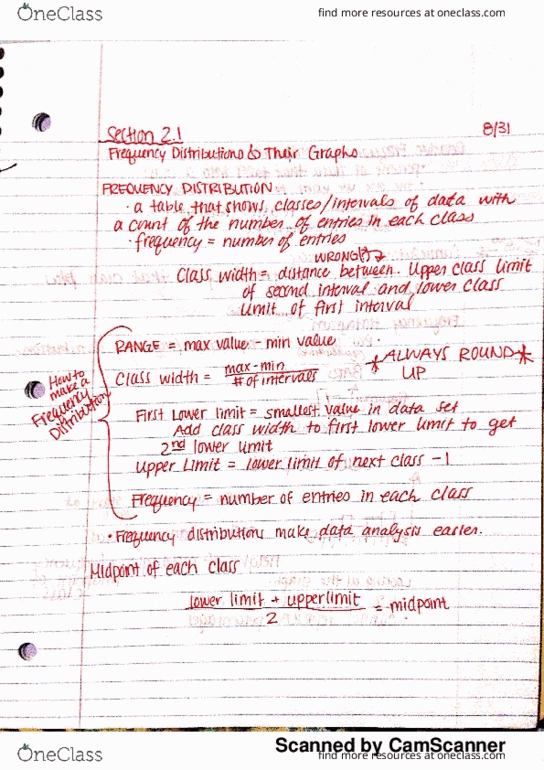 OneClass
find more resources at oneclass.com
Section 2.1
8/31
Frequency Distributions & Their Graphs
FREQUENCY DISTRIBUTION
· a table that shows classes/intervals of data with
a count of the number of entries in each class
· frequency = number of entries
WRONG(?)
Class width = distance between upper class limit
of second interval and lower class
limit of first interval
RANGE = max value - min value
Class width = max-min
# of intervals
* ALWAYS ROUND *
UP
How to
make a
Frequency
Distribution
First Lower limit = smallest value in data set
Add class width to first lower limit to get
2nd lower limit
Upper Limit = lower limit of next class -1
Frequency = number of entries in each class
· Frequency distributions make data analysis easier.
Midpoint of each class
lower limit + upper limit = midpoint
2
Scanned by CamScanner
OneClass
find more resources at oneclass.com